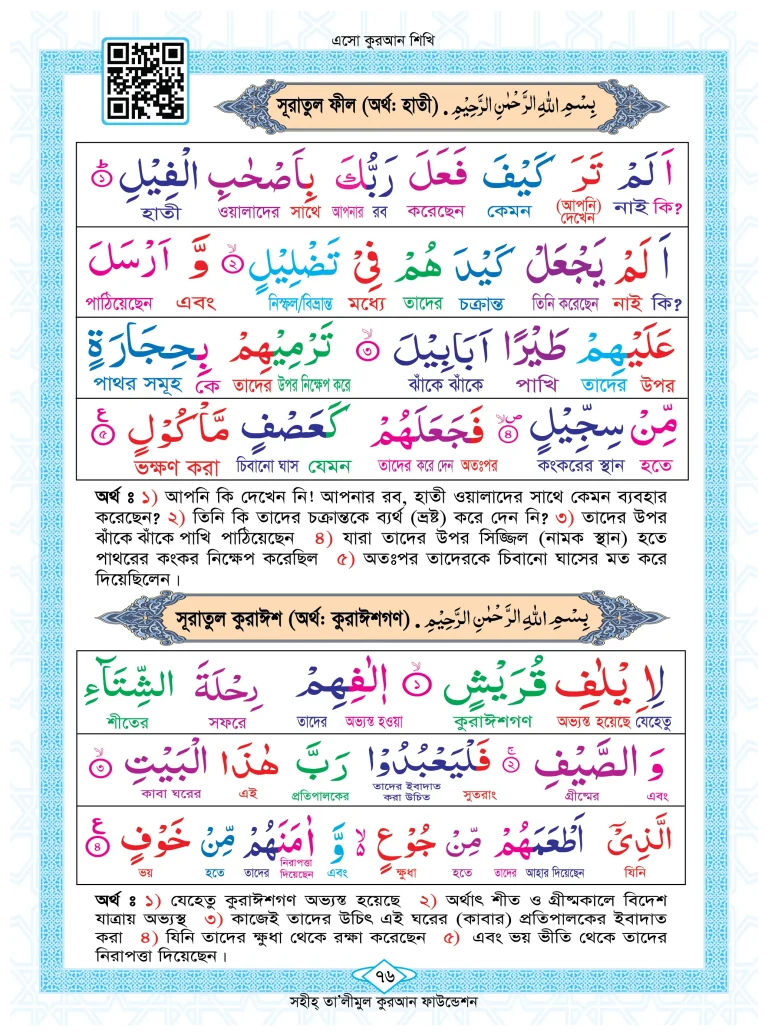 এসো কুরআন শিখি
সূরাতুল ফীল (অর্থ: হাতী) . بِسْمِ اللهِ الرَّحْمٰنِ الرَّحِيْمِ
اَلَمْ تَرَ كَيْفَ فَعَلَ رَبُّكَ بِاَصْحٰبِ الْفِيْلِ ۱
নাই কি? (আপনি) দেখেন কেমন করেছেন আপনার রব ওয়ালাদের সাথে হাতী
اَلَمْ يَجْعَلْ كَيْدَ هُمْ فِيْ تَضْلِيْلٍ ۲ وَّ اَرْسَلَ
নাই কি? তিনি করেছেন চক্রান্ত তাদের মধ্যে নিস্ফল/বিভ্রান্ত এবং পাঠিয়েছেন
عَلَيْهِمْ طَيْرًا اَبَابِيْلَ ۳ تَرْمِيْهِمْ بِحِجَارَةٍ
উপর তাদের পাখি ঝাঁকে ঝাঁকে তাদের উপর নিক্ষেপ করে কে পাথর সমূহ
مِّنْ سِجِّيْلٍ ۴ فَجَعَلَهُمْ كَعَصْفٍ مَّاْكُوْلٍ ۵
হতে কংকরের স্থান তাদের করে দেন অতঃপর চিবানো ঘাস যেমন ভক্ষণ করা
অর্থ ঃ ১) আপনি কি দেখেন নি! আপনার রব, হাতী ওয়ালাদের সাথে কেমন ব্যবহার
করেছেন? ২) তিনি কি তাদের চক্রান্তকে ব্যর্থ (ভ্রষ্ট) করে দেন নি? ৩) তাদের উপর
ঝাঁকে ঝাঁকে পাখি পাঠিয়েছেন ৪) যারা তাদের উপর সিজ্জিল (নামক স্থান) হতে
পাথরের কংকর নিক্ষেপ করেছিল ৫) অতঃপর তাদেরকে চিবানো ঘাসের মত করে
দিয়েছিলেন।
সূরাতুল কুরাঈশ (অর্থ: কুরাঈশগণ) . بِسْمِ اللهِ الرَّحْمٰنِ الرَّحِيْمِ
لِاِيْلٰفِ قُرَيْشٍ ۱ اِلٰفِهِمْ رِحْلَةَ الشِّتَآءِ
অভ্যস্ত হয়েছে যেহেতু কুরাঈশগণ তাদের অভ্যস্ত হওয়া সফরে শীতের
وَ الصَّيْفِ ۲ فَلْيَعْبُدُوْا رَبَّ هٰذَا الْبَيْتِ ۳
এবং গ্রীষ্মের সুতরাং তাদের ইবাদাত করা উচিত প্রতিপালকের এই কাবা ঘরের
الَّذِيْٓ اَطْعَمَهُمْ مِّنْ جُوْعٍ وَّ اٰمَنَهُمْ مِّنْ خَوْفٍ ۴
যিনি তাদের আহার দিয়েছেন হতে ক্ষুধা এবং নিরাপত্তা দিয়েছেন তাদের হতে ভয়
অর্থ ঃ ১) যেহেতু কুরাঈশগণ অভ্যস্ত হয়েছে ২) অর্থাৎ শীত ও গ্রীষ্মকালে বিদেশ
যাত্রায় অভ্যস্থ ৩) কাজেই তাদের উচিৎ এই ঘরের (কাবার) প্রতিপালকের ইবাদাত
করা ৪) যিনি তাদের ক্ষুধা থেকে রক্ষা করেছেন ৫) এবং ভয় ভীতি থেকে তাদের
নিরাপত্তা দিয়েছেন।
৭৬
সহীহ্ তা'লীমুল কুরআন ফাউন্ডেশন